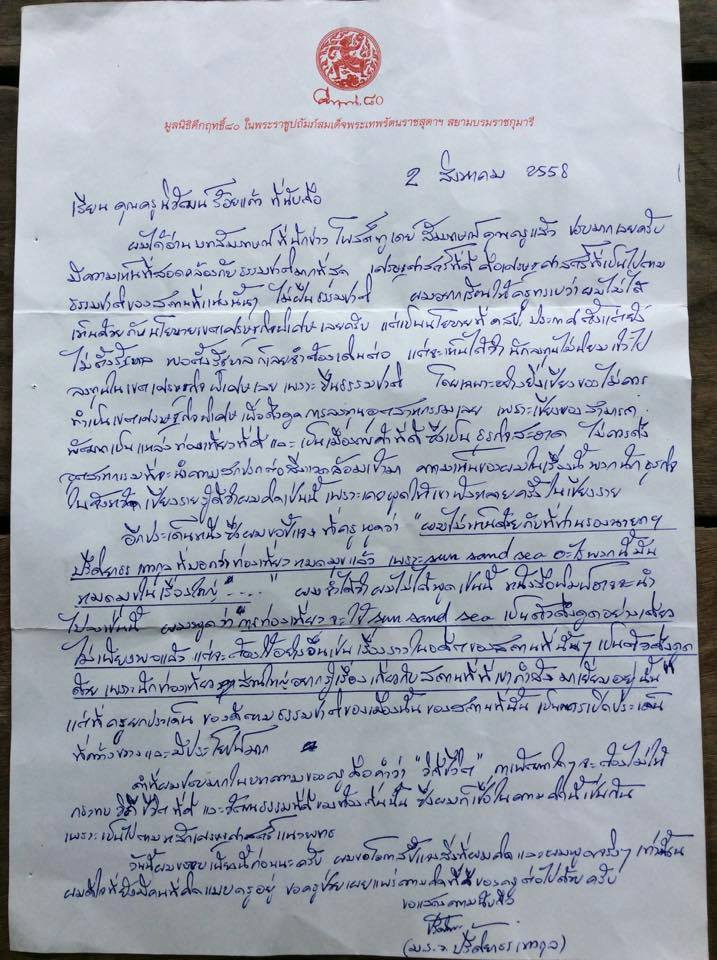 คึกฤทธิ์ ๘๐
มูลนิธิคึกฤทธิ์๘๐ ในพระราชูปถัมภ์สมเด็จพระเทพรัตนราชสุดาฯ สยามบรมราชกุมารี
2 สิงหาคม 2558
เรียน คุณครูนิวัฒน์ ร้อยแก้ว ที่นับถือ
ผมได้อ่านบทสัมภาษณ์ที่นักข่าว โพสต์ทูเดย์ สัมภาษณ์คุณครูแล้ว ชอบมากเลยครับ
มีความเห็นที่สอดคล้องกับธรรมชาติมากที่สุด เศรษฐศาสตร์ที่ดี คือเศรษฐศาสตร์ที่เป็นไปตาม
ธรรมชาติของสถานที่แห่งนั้นๆ ไม่ฝืนธรรมชาติ ผมอยากเรียนให้ครูทราบว่าผมไม่ได้
เห็นด้วยกับนโยบายเขตเศรษฐกิจพิเศษเลยครับ แต่เป็นนโยบายที่ คสช. ประกาศตั้งแต่ยัง
ไม่ตั้งรัฐบาล พอตั้งรัฐบาลก็เลยจำต้องเดินต่อ แต่จะเห็นได้ว่า นักลงทุนไม่นิยมเข้าไป
ลงทุนในเขตเศรษฐกิจพิเศษเลย เพราะฝืนธรรมชาติ โดยเฉพาะอย่างยิ่งเชียงของไม่ควร
ทำเป็นเขตเศรษฐกิจพิเศษเพื่อดึงดูดการลงทุนอุตสาหกรรมเลย เพราะเชียงของสามารถ
พัฒนาเป็นแหล่งท่องเที่ยวที่ดี และเป็นเมืองค้าที่ดี ซึ่งเป็นธุรกิจสะอาด ไม่ควรดึง
อุตสาหกรรมที่จะนำความสกปรกต่อสิ่งแวดล้อมเข้ามา ความเห็นของผมในเรื่องนี้ พวกนักธุรกิจ
ในจังหวัดเชียงรายรู้ดีว่าผมคิดเช่นนี้ เพราะเคยพูดให้เขาฟังหลายครั้งในเชียงราย
อีกประเด็นหนึ่งซึ่งผมขอชี้แจง ที่ครูพูดว่า "ผมไม่เห็นด้วยกับที่ท่านรองนายกฯ
ปรีดิยาธร เทวกุลที่บอกว่าท่องเที่ยวหมดมุขแล้ว เพราะ sun sand sea อะไรพวกนี้มัน
หมดมุขในเรื่องใหญ่ "....." ผมจำได้ว่าผมไม่ได้พูดเช่นนี้ หนังสือพิมพ์อาจจะนำ
ไปลงเช่นนี้ ผมพูดว่า "การท่องเที่ยวจะใช้ sun sand sea เป็นตัวดึงดูดอย่างเดียว
ไม่เพียงพอแล้ว แต่จะต้องใช้อย่างอื่นเช่นเรื่องราวในอดีตของสถานที่นั้นๆ เป็นตัวดึงดูด
ด้วย เพราะนักท่องเที่ยวส่วนใหญ่อยากรู้เรื่องเกี่ยวกับสถานที่ที่เขากำลังมาเยี่ยมอยู่นั้น"
แต่ที่ครูยกประเด็น ของดีตามธรรมชาติของเมืองนั้นของสถานที่นั้น เป็นการเปิดประเด็น
ที่กว้างขวางและมีประโยชน์มาก
คำที่ผมชอบมากในบทความของครู คือคำว่า "วิถีชีวิต" การพัฒนาใดๆ จะต้องไม่ให้
กระทบวิถีชีวิตที่ดี และวัฒนธรรมที่ดีของท้องถิ่นนั้น ซึ่งผมก็เชื่อในความคิดนี้เช่นกัน
เพราะเป็นไปตามหลักเศรษฐศาสตร์แนวพุทธ
วันนี้ผมขอจบเพียงนี้ก่อนนะครับ ผมขอโอกาสชี้แจงสิ่งที่ผมคิด และผมพูดจริงๆ เท่านั้น
ผมดีใจที่ยังมีคนที่คิดแบบครูอยู่ ขอครูช่วยเผยแพร่ความคิดที่ดีของครูต่อไปด้วยครับ
ขอแสดงความนับถือ
(ม.ร.ว. ปรีดิยาธร เทวกุล)